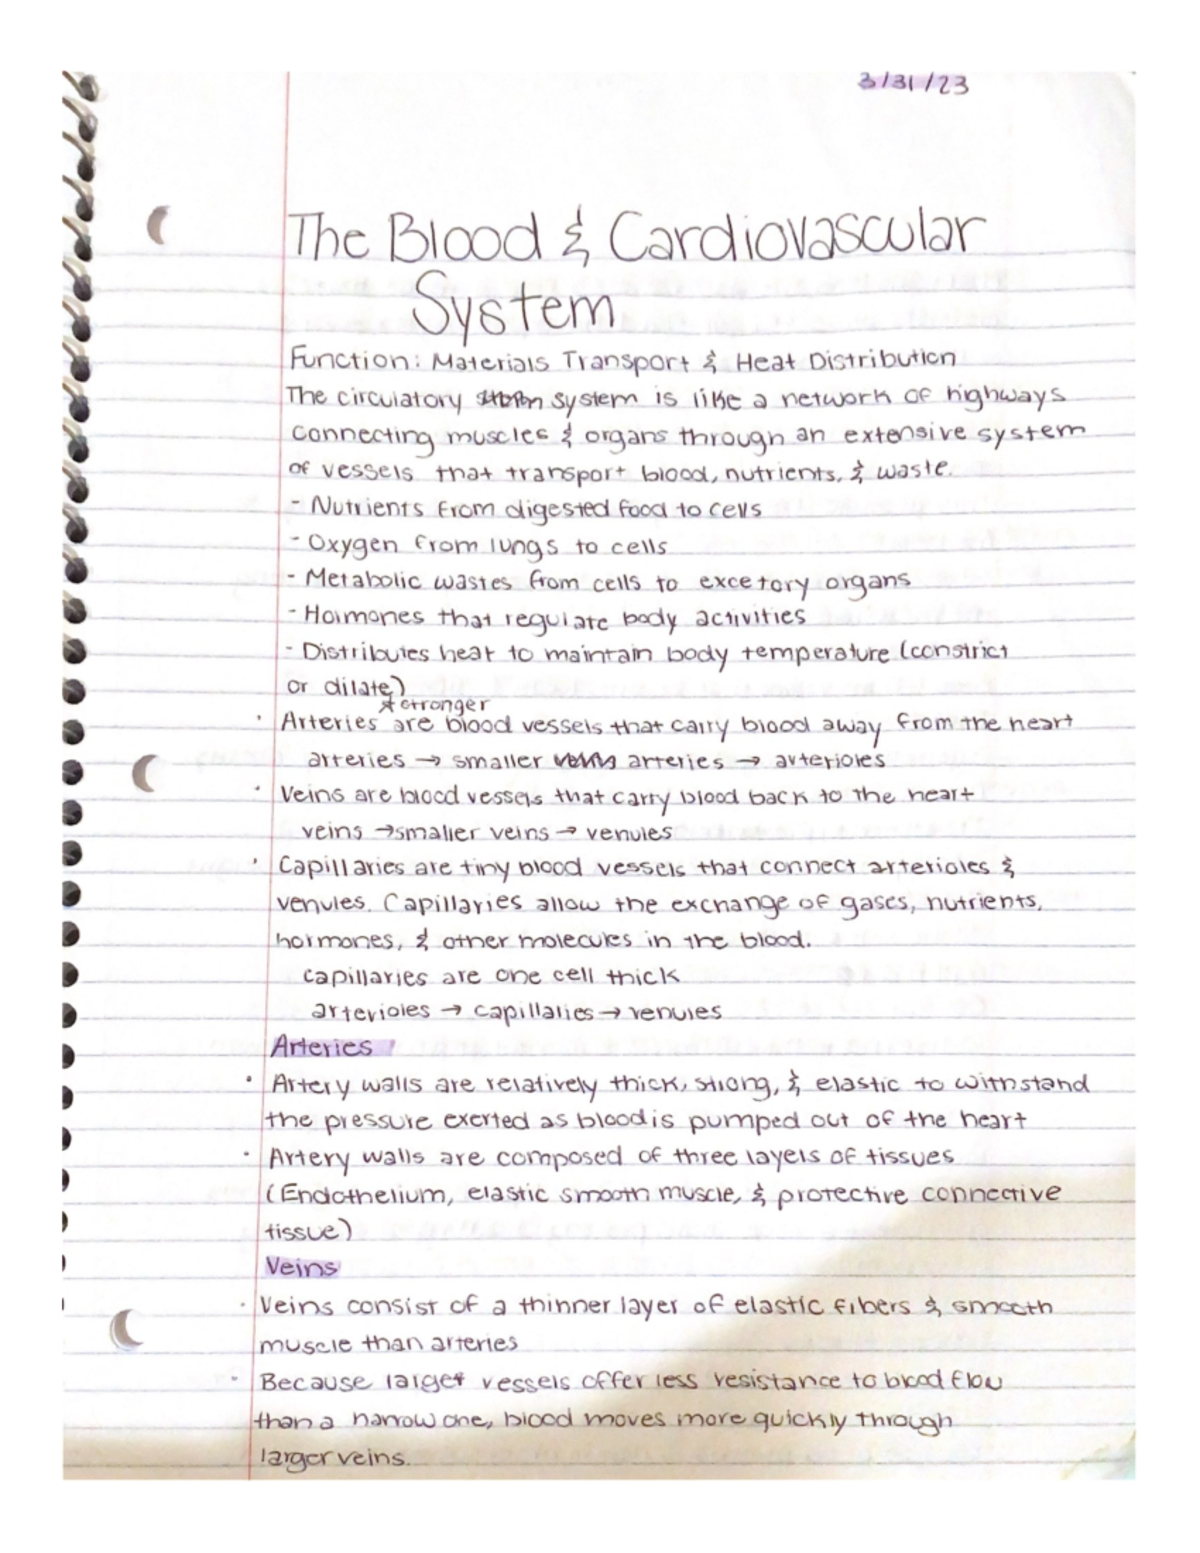 3/31/23
The Blood & Cardiovascular
System
Function: Materials Transport & Heat Distribution
The circulatory system is like a network of highways
connecting muscles & organs through an extensive system
of vessels that transport blood, nutrients, & waste.
- Nutrients from digested food to cells
- Oxygen from lungs to cells
- Metabolic wastes from cells to excetory organs
- Hormones that regulate body activities
- Distributes heat to maintain body temperature (constrict
or dilate)
* stronger
· Arteries are blood vessels that carry blood away from the heart
arteries → smaller arteries → arterioles
· Veins are blood vessels that carry blood back to the heart
veins → smaller veins → venules
· Capillaries are tiny blood vessels that connect arterioles &
venules. Capillaries allow the exchange of gases, nutrients,
hormones, & other molecules in the blood.
capillaries are one cell thick
arterioles → capillaries → venules
Arteries
· Artery walls are relatively thick, strong, & elastic to withstand
the pressure exerted as blood is pumped out of the heart
· Artery walls are composed of three layers of tissues
(Endothelium, elastic smooth muscle, & protective connective
tissue)
Veins
· Veins consist of a thinner layer of elastic fibers & smooth
muscle than arteries
· Because larger vessels offer less resistance to blood flow
than a narrow one, blood moves more quickly through
larger veins.